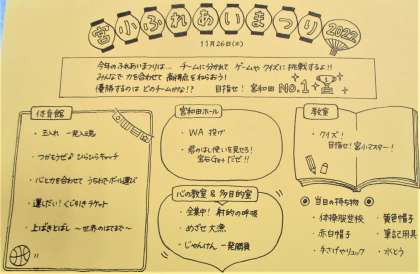 宮小ふれあいまつり 2022
11月26日(土)
今年のふれあいまつりは… チームに分かれて ゲームや クイズに挑戦するよ!!
みんなで 力を合わせて 高得点をねらおう!
優勝するのは どのチームかな!? 目指せ! 宮和田 No.1
体育館
・玉入れ 一発入魂
・つかもうぜ♪ ひらひらキャッチ
・心と力を合わせて うちわでボール運び
・運しだい! くじ引きチケット
・上ばきとばし ~世界のはてまで~
宮和田ホール
・WA 投げ
・君のはし使いを見せろ!
宮石Getだぜ!!
心の教室 & 多目的室
・全集中! 射的の呼吸
・めざせ 大漁
・じゃんけん 一発勝負
教室
・クイズ!
目指せ! 宮小マスター!
当日の持ち物
・体操服登校
・赤白帽子
・手さげやリュック
・黄色帽子
・筆記用具
・水とう